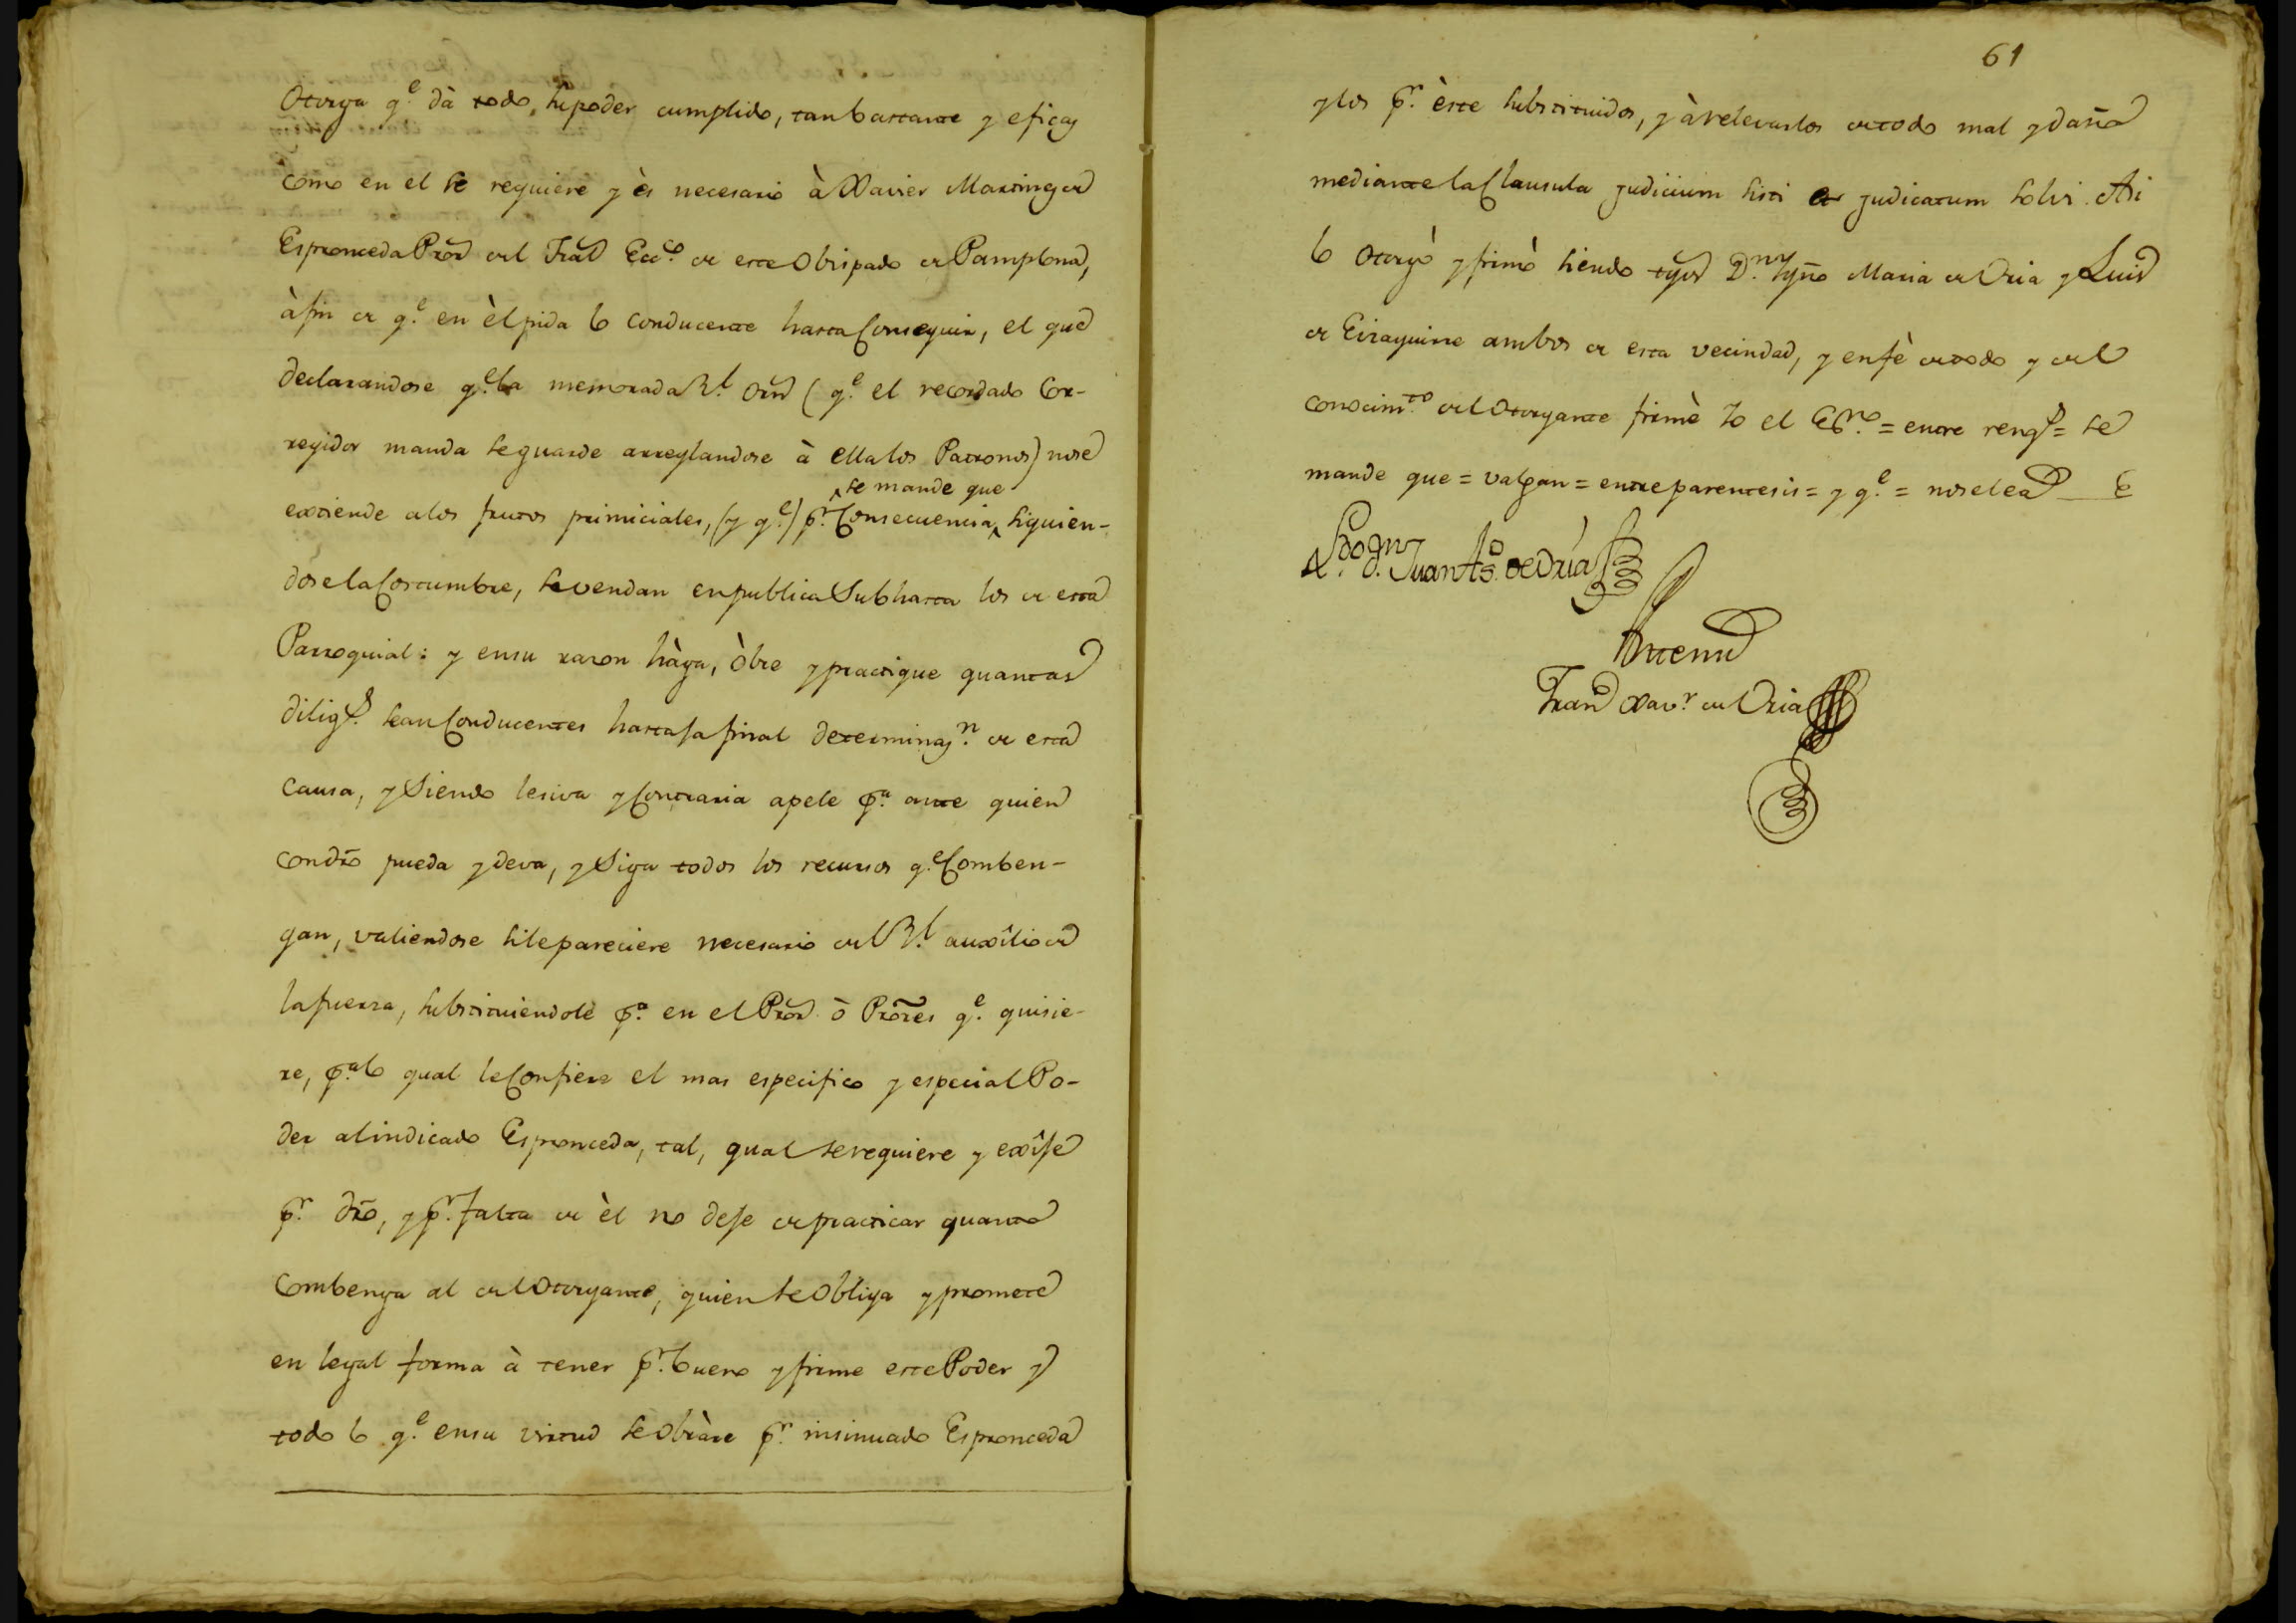 Otorga q.e dà todo, su poder cumplido, tan bastante y eficaz
como en el se requiere y ès necesario à Xavier Martinez de
Espronceda Pror del Tral Ecc.co de este Obispado de Pamplona,
à fin de q.e en èl pida lo conducente hasta Conseguir, el que
declarandose q.e la memorada R.l orn (q.e el recordado Cor-
regidor manda se guarde arreglandose à ella los Patronos) no se
se mande que
extiende a los frutos primiciales, (y q.e) p.r Consecuencia, siguien-
dose la Costumbre, se vendan en publica Subhasta los de esta
Parroquial: y en su razon hàga, òbre y practique quantas
dilig.s sean Conducentes hasta la final determinaz.n de esta
causa, y Siendo lesiva y Contraria apele p.a ante quien
con dro pueda y deva, y Siga todos los recursos q.e Comben-
gan, valiendose si le pareciere necesario del R.l auxîlio de
la fuerza, substituiendole p.a en el Pror ò Prores q.e quisie-
re, p.a lo qual le Confiere el mas especifico y especial Po-
der al indicado Espronceda, tal, qual se requiere y exîje
p.r dro, y p.r falta de èl no deje de practicar quanto
Combenga al del Otorgante, quien se Obliga y promete
en legal forma à tener p.r bueno y firme este Poder y
todo lo q.e en su virtud se Obràre p.r insinuado Espronceda
61
y los p.r èste substituidos, y à relevarlos de todo mal y daño
mediante la Clausula judicium sisti et judicatum solvi. Asi
lo Otorgò y firmò siendo tgos D.n Ygn.o Maria de Oria y Luis
de Eizaguirre ambos de esta vecindad, y en fè de todo y del
conocim.to del Otorgante firmè Yo el Es.no = entre rengs = se
mande que = valgan = entre parentesis = y q.e = no se lea
L.do D.n Juan At.o de Oria
Ante mi
Fran Xav.r de Oria